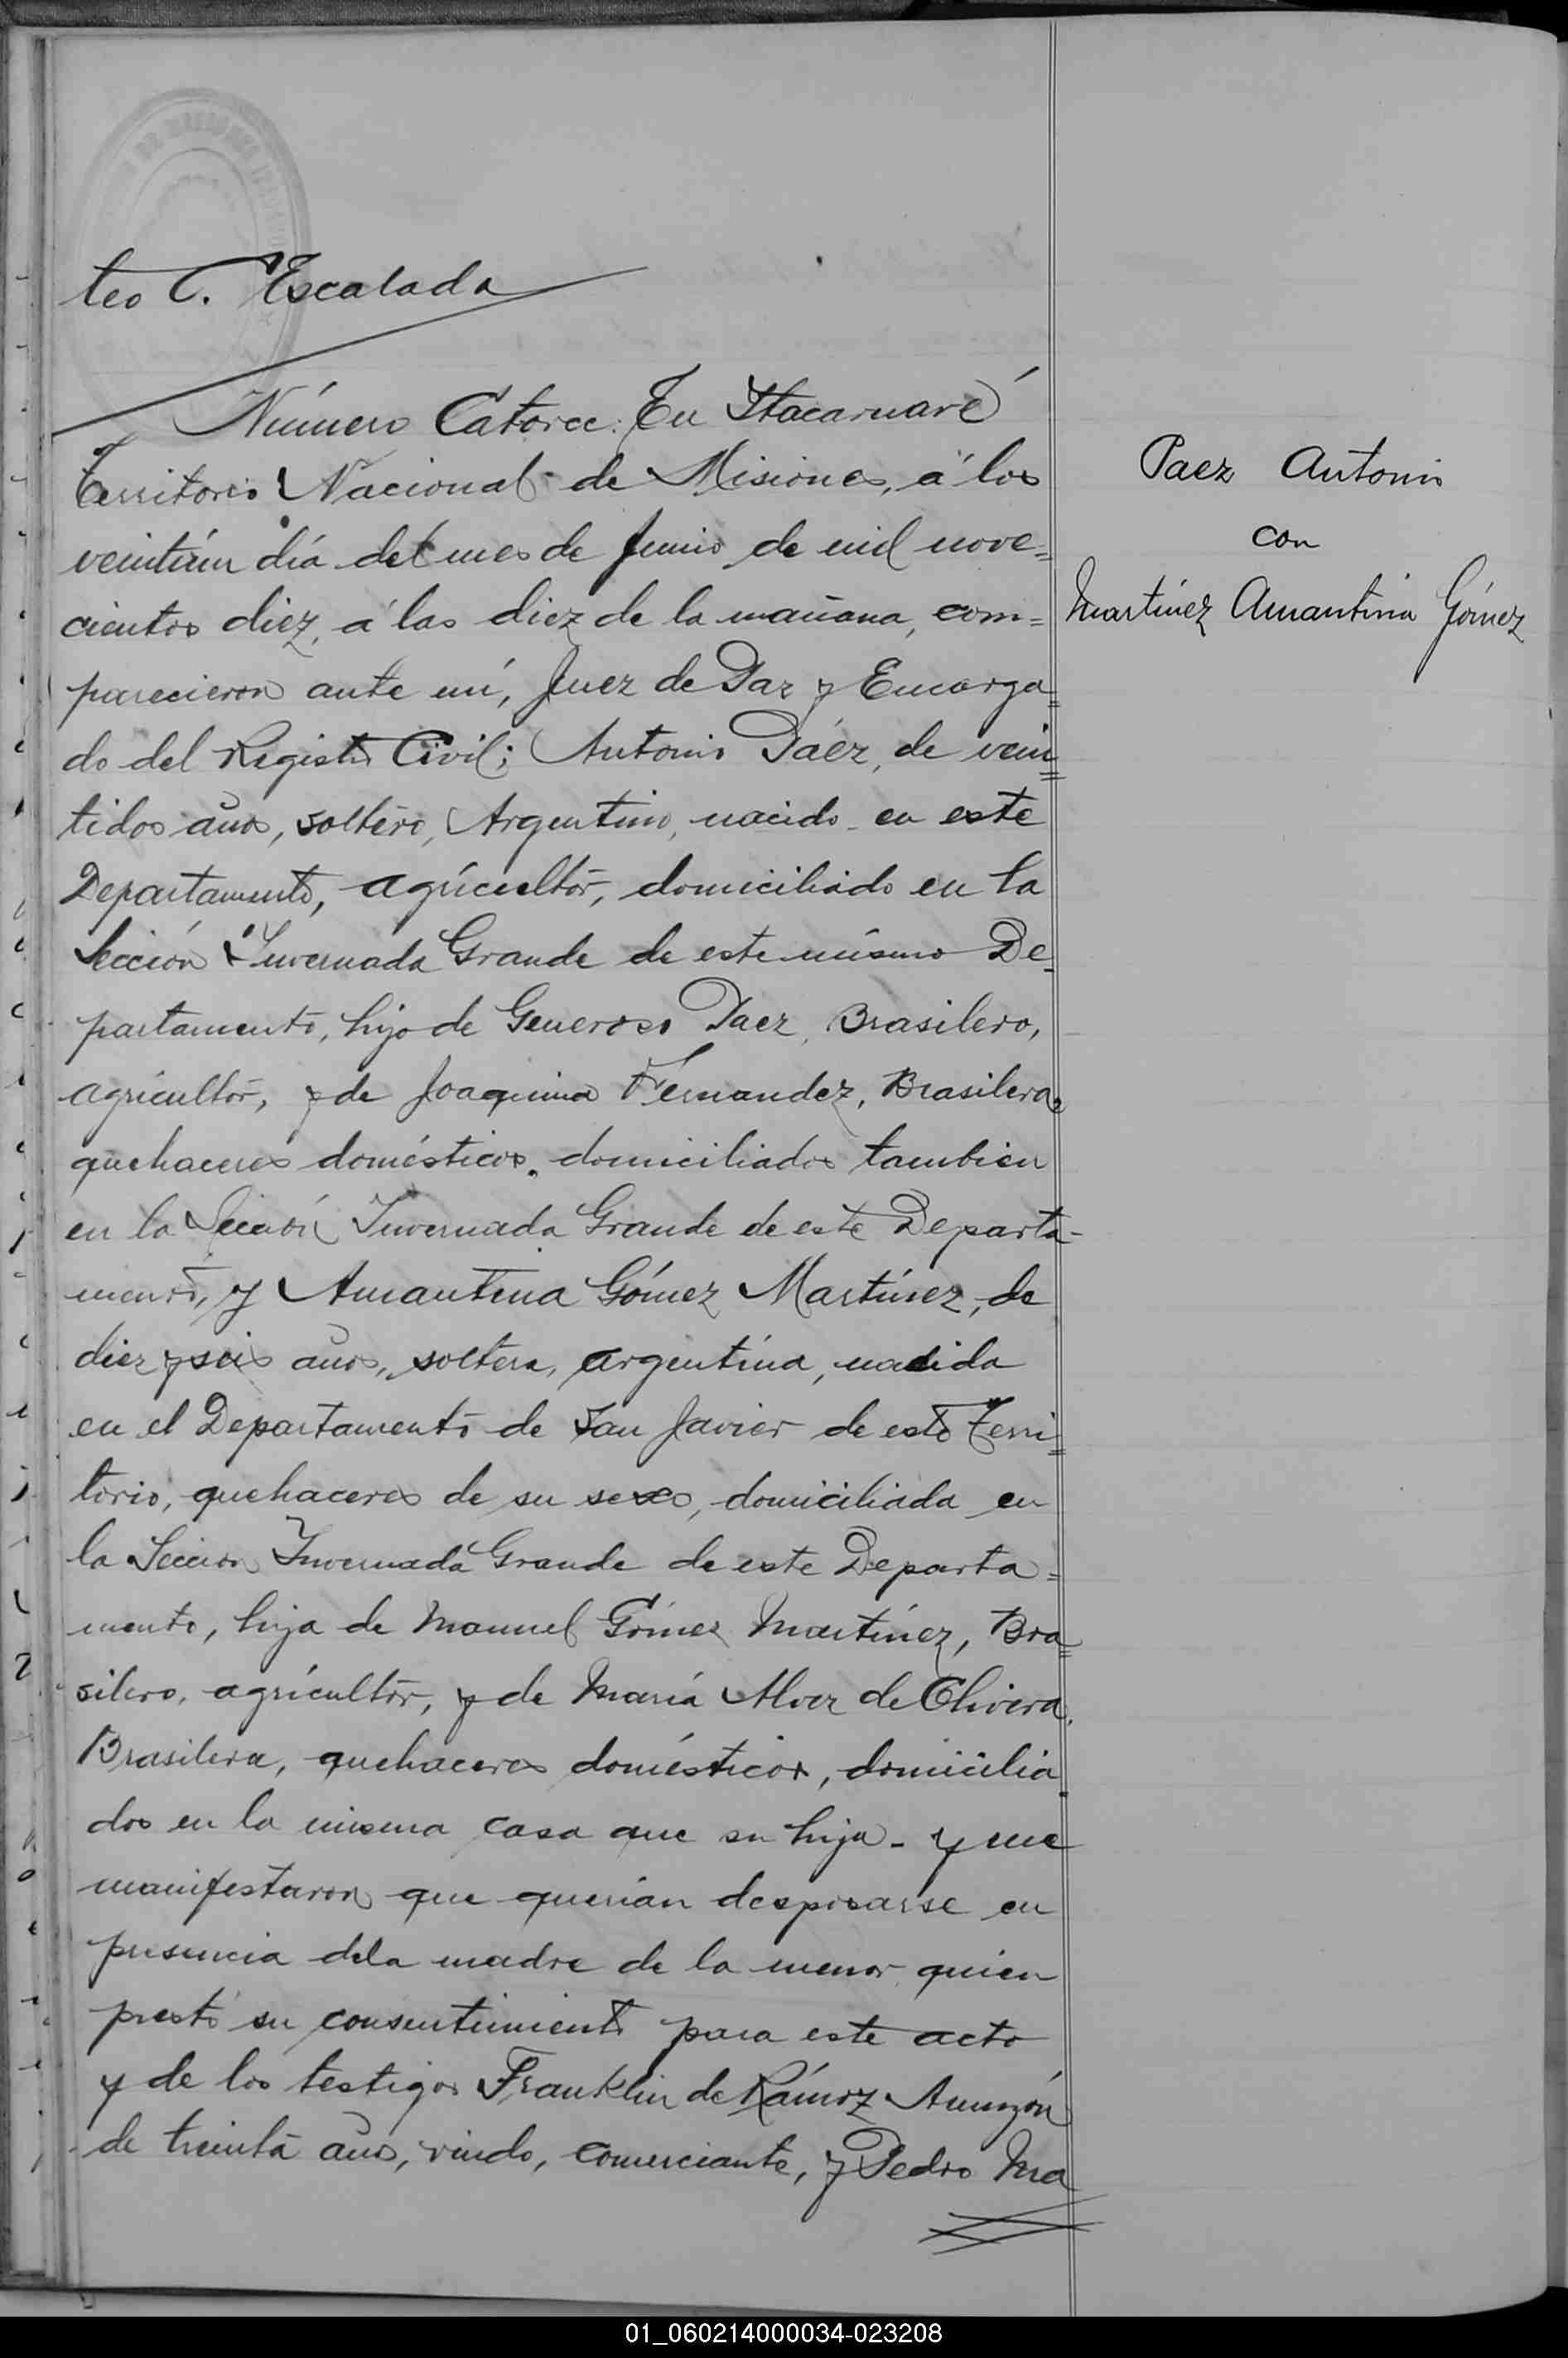 teo C. Escalada
Número Catorce: En Itacaruaré
Territorio Nacional de Misiones, á los
veintiún día del mes de Junio de mil nove=
cientos diez, á las diez de la mañana, com=
parecieron ante mí, Juez de Paz y Encarga=
do del Registro Civil; Antonio Páez, de vein=
tidos años, soltero, Argentino, nacido en este
Departamento, agricultor, domiciliado en la
Sección Invernada Grande de este mismo De=
partamento, hijo de Generoso Paez, Brasilero,
agricultor, y de Joaquina Fernandez, Brasilera,
quehaceres domésticos, domiciliados tambien
en la Sección Invernada Grande de este Departa-
mento, y Amantina Gómez Martínez, de
diez y seis años, soltera, argentina, nacida
en el Departamento de San Javier de este Terri=
torio, quehaceres de su sexo, domiciliada en
la Sección Invernada Grande de este Departa=
mento, hija de Manuel Gómez Martínez, Bra=
silero, agricultor, y de María Alvez de Olivera,
Brasilera, quehaceres domésticos, domicilia
dos en la misma casa que su hija - y me
manifestaron que querían desposarse en
presencia dela madre de la menor quien
prestó su consentimiento para este acto
y de los testigos Franklin de Rámoz
de treinta años, viudo, comerciante, y Pedro Ma
Paez Antonio
con
Martínez Amantina Gómez
01_060214000034-023208